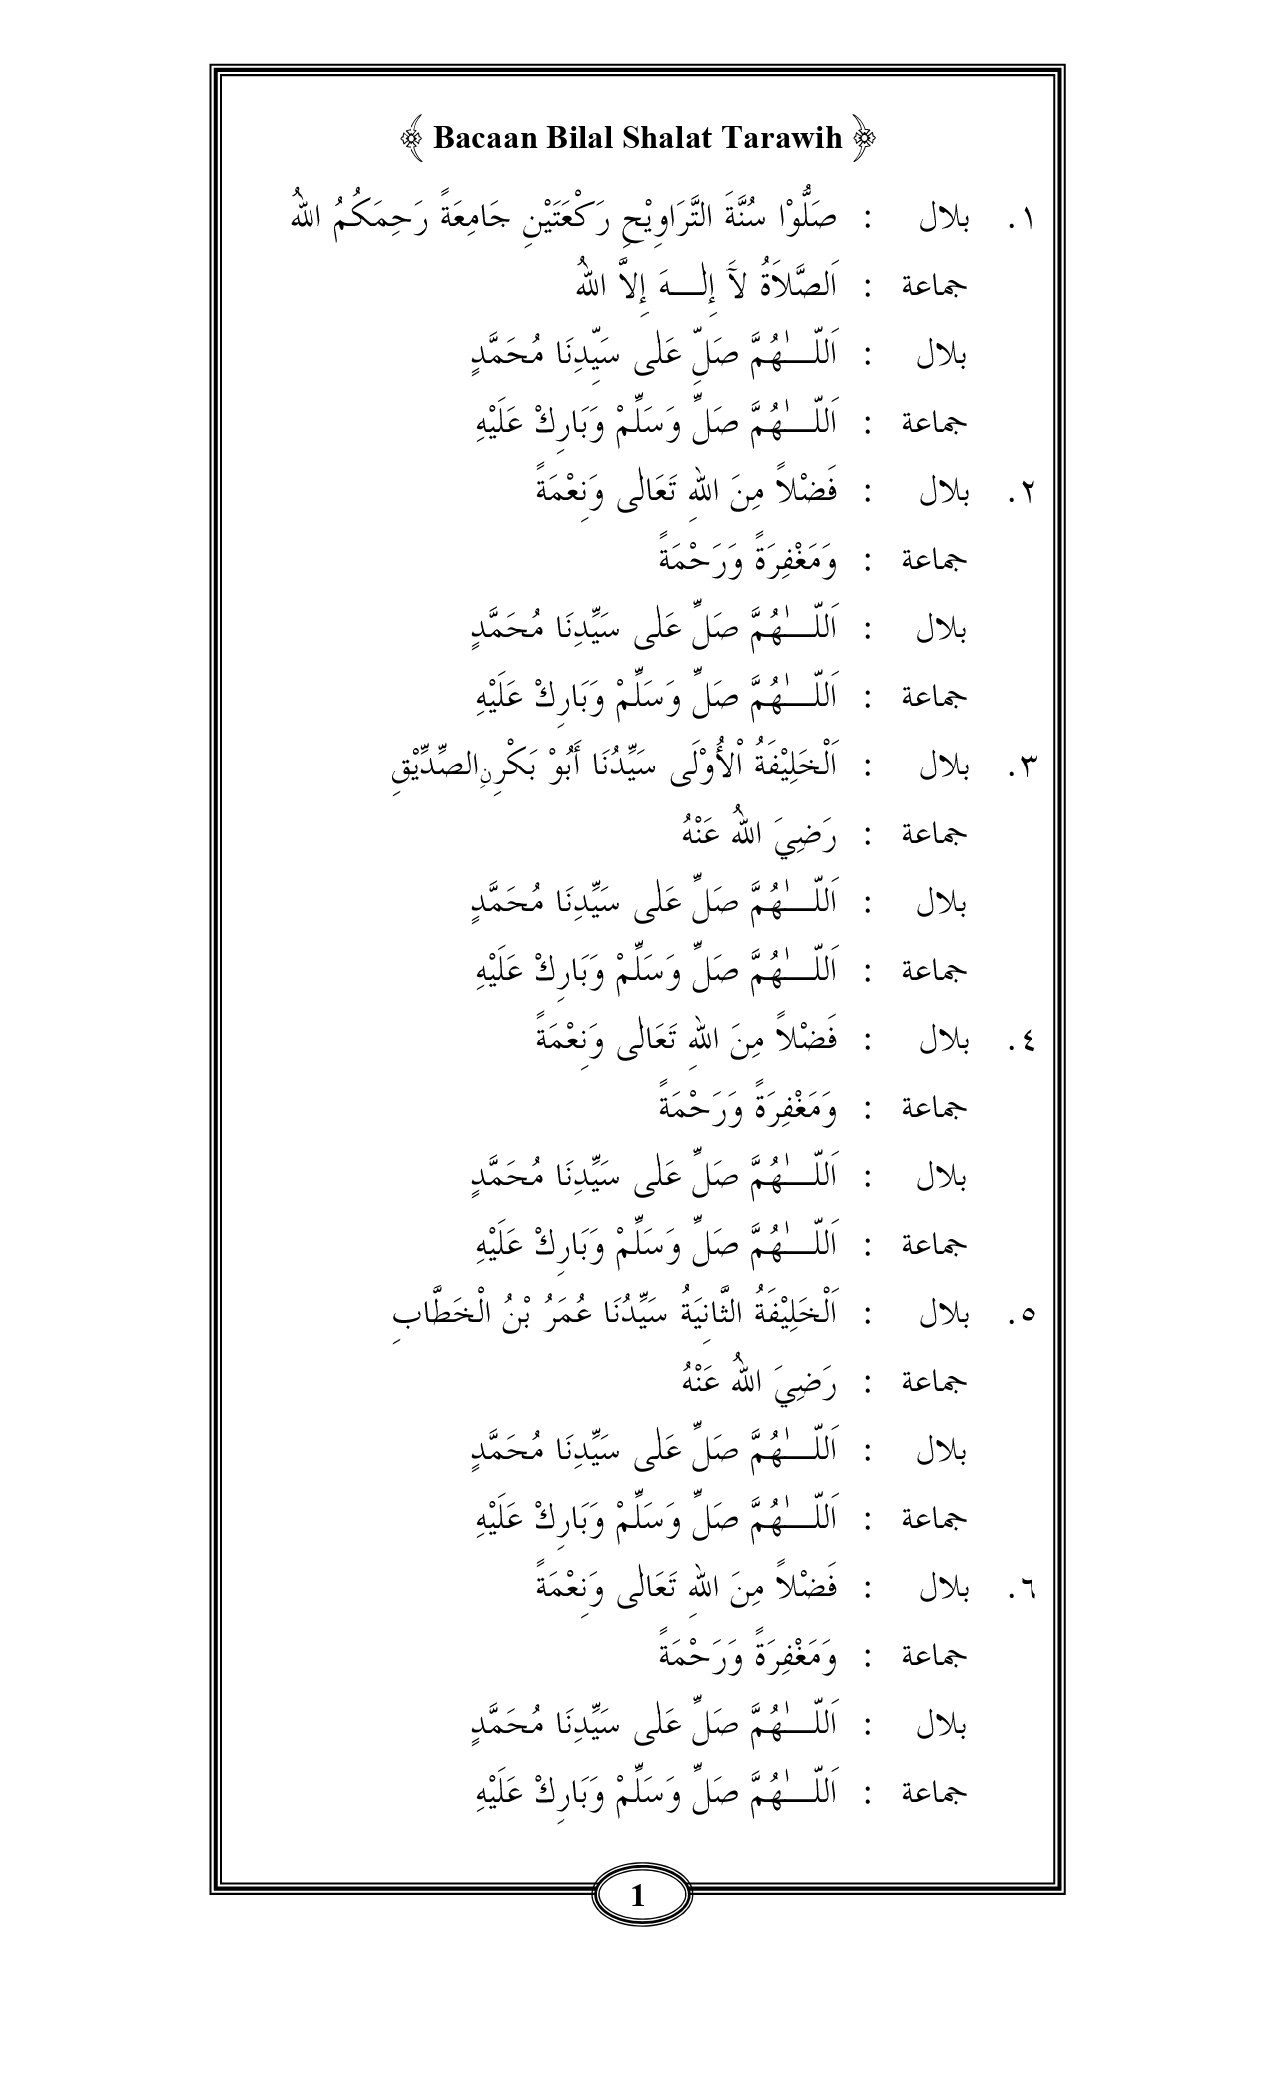 ﴿ Bacaan Bilal Shalat Tarawih ﴾
١. بلال : صَلُّوْا سُنَّةَ التَّرَاوِيْحِ رَكْعَتَيْنِ جَامِعَةً رَحِمَكُمُ اللهُ
جماعة : اَلصَّلاَةُ لآَ إِلـــهَ إِلاَّ اللهُ
بلال : اَللّـــٰهُمَّ صَلِّ عَلٰى سَيِّدِنَا مُحَمَّدٍ
جماعة : اَللّـــٰهُمَّ صَلِّ وَسَلِّمْ وَبَارِكْ عَلَيْهِ
٢. بلال : فَضْلاً مِنَ اللهِ تَعَالٰى وَنِعْمَةً
جماعة : وَمَغْفِرَةً وَرَحْمَةً
بلال : اَللّـــٰهُمَّ صَلِّ عَلٰى سَيِّدِنَا مُحَمَّدٍ
جماعة : اَللّـــٰهُمَّ صَلِّ وَسَلِّمْ وَبَارِكْ عَلَيْهِ
٣. بلال : اَلْخَلِيْفَةُ اْلأُوْلَى سَيِّدُنَا أَبُوْ بَكْرِنِالصِّدِّيْقِ
جماعة : رَضِيَ اللهُ عَنْهُ
بلال : اَللّـــٰهُمَّ صَلِّ عَلٰى سَيِّدِنَا مُحَمَّدٍ
جماعة : اَللّـــٰهُمَّ صَلِّ وَسَلِّمْ وَبَارِكْ عَلَيْهِ
٤. بلال : فَضْلاً مِنَ اللهِ تَعَالٰى وَنِعْمَةً
جماعة : وَمَغْفِرَةً وَرَحْمَةً
بلال : اَللّـــٰهُمَّ صَلِّ عَلٰى سَيِّدِنَا مُحَمَّدٍ
جماعة : اَللّـــٰهُمَّ صَلِّ وَسَلِّمْ وَبَارِكْ عَلَيْهِ
٥. بلال : اَلْخَلِيْفَةُ الثَّانِيَةُ سَيِّدُنَا عُمَرُ بْنُ الْخَطَّابِ
جماعة : رَضِيَ اللهُ عَنْهُ
بلال : اَللّـــٰهُمَّ صَلِّ عَلٰى سَيِّدِنَا مُحَمَّدٍ
جماعة : اَللّـــٰهُمَّ صَلِّ وَسَلِّمْ وَبَارِكْ عَلَيْهِ
٦. بلال : فَضْلاً مِنَ اللهِ تَعَالٰى وَنِعْمَةً
جماعة : وَمَغْفِرَةً وَرَحْمَةً
بلال : اَللّـــٰهُمَّ صَلِّ عَلٰى سَيِّدِنَا مُحَمَّدٍ
جماعة : اَللّـــٰهُمَّ صَلِّ وَسَلِّمْ وَبَارِكْ عَلَيْهِ
1